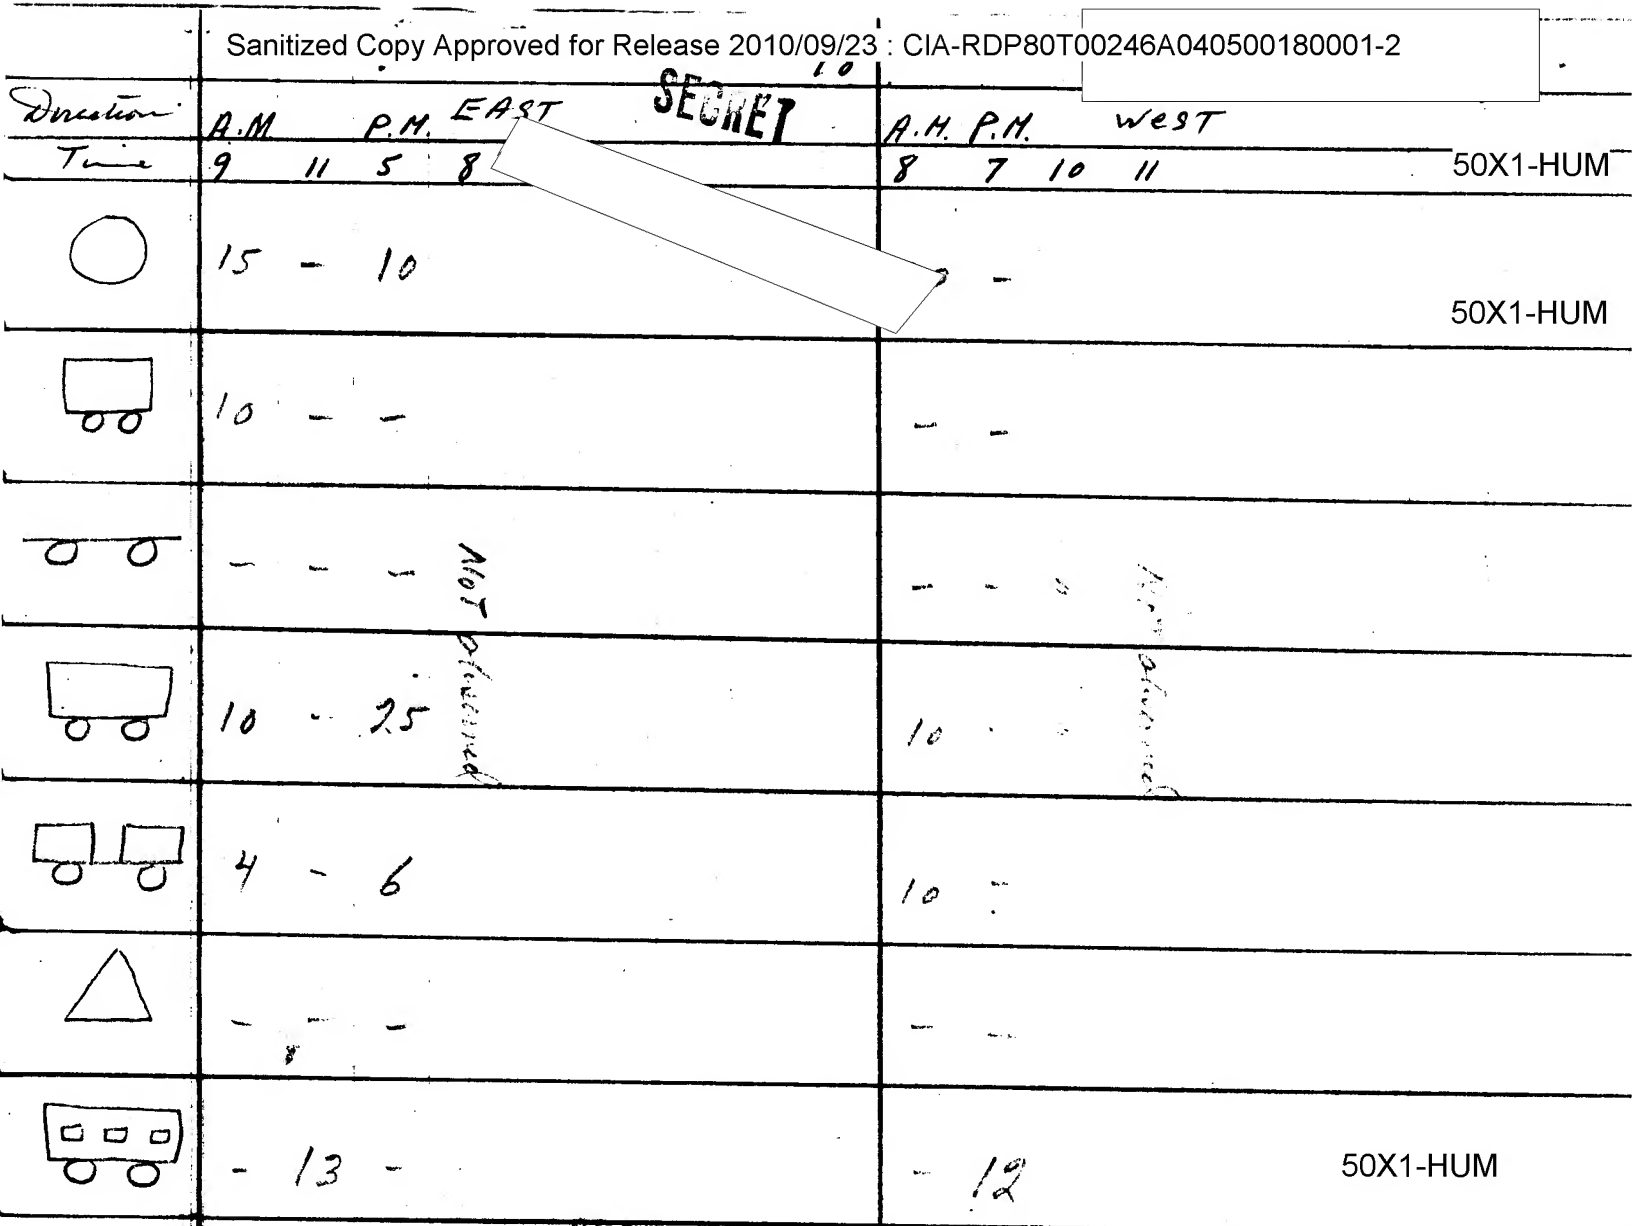 Sanitized Copy Approved for Release 2010/09/23 : CIA-RDP80T00246A040500180001-2
10
SECRET
Direction A.M. P.M. EAST A.M. P.M. WEST
Time 9 11 5 8 8 7 10 11
50X1-HUM
15 - 10 -
50X1-HUM
10 - - - -
- - - - - 0
Not observed
Not observed
10 - 25 10 - 0
4 - 6 10 -
- - - - -
- 13 - - 12
50X1-HUM